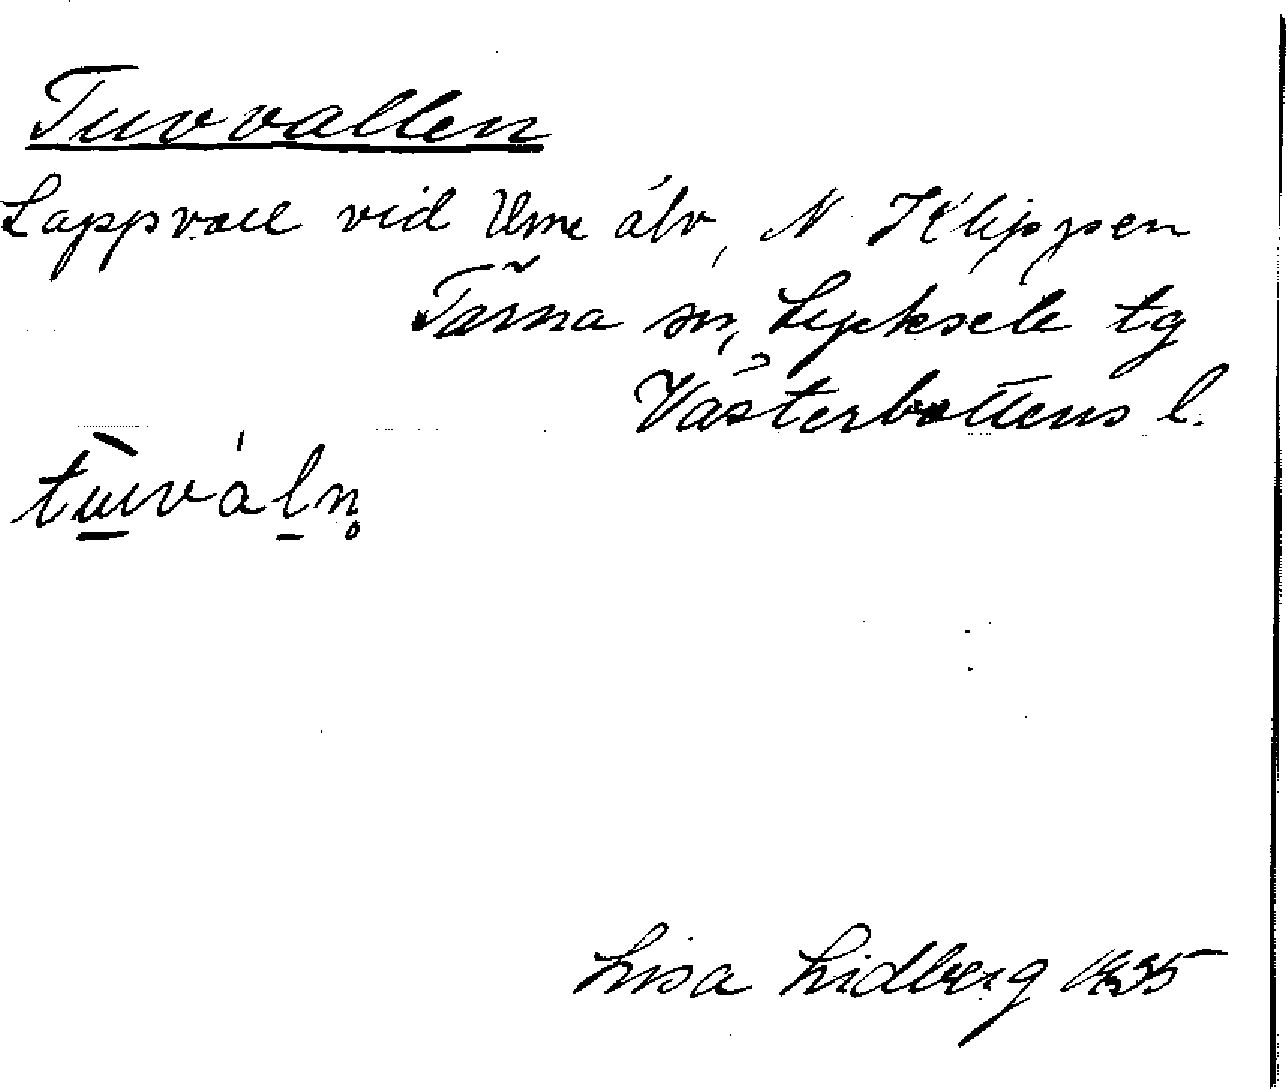 Tuvvallen
Lappvall vid Ume älv, N Klippen
Tärna sn, Lycksele tg
Västerbottens l.
Lisa Lidberg 1935